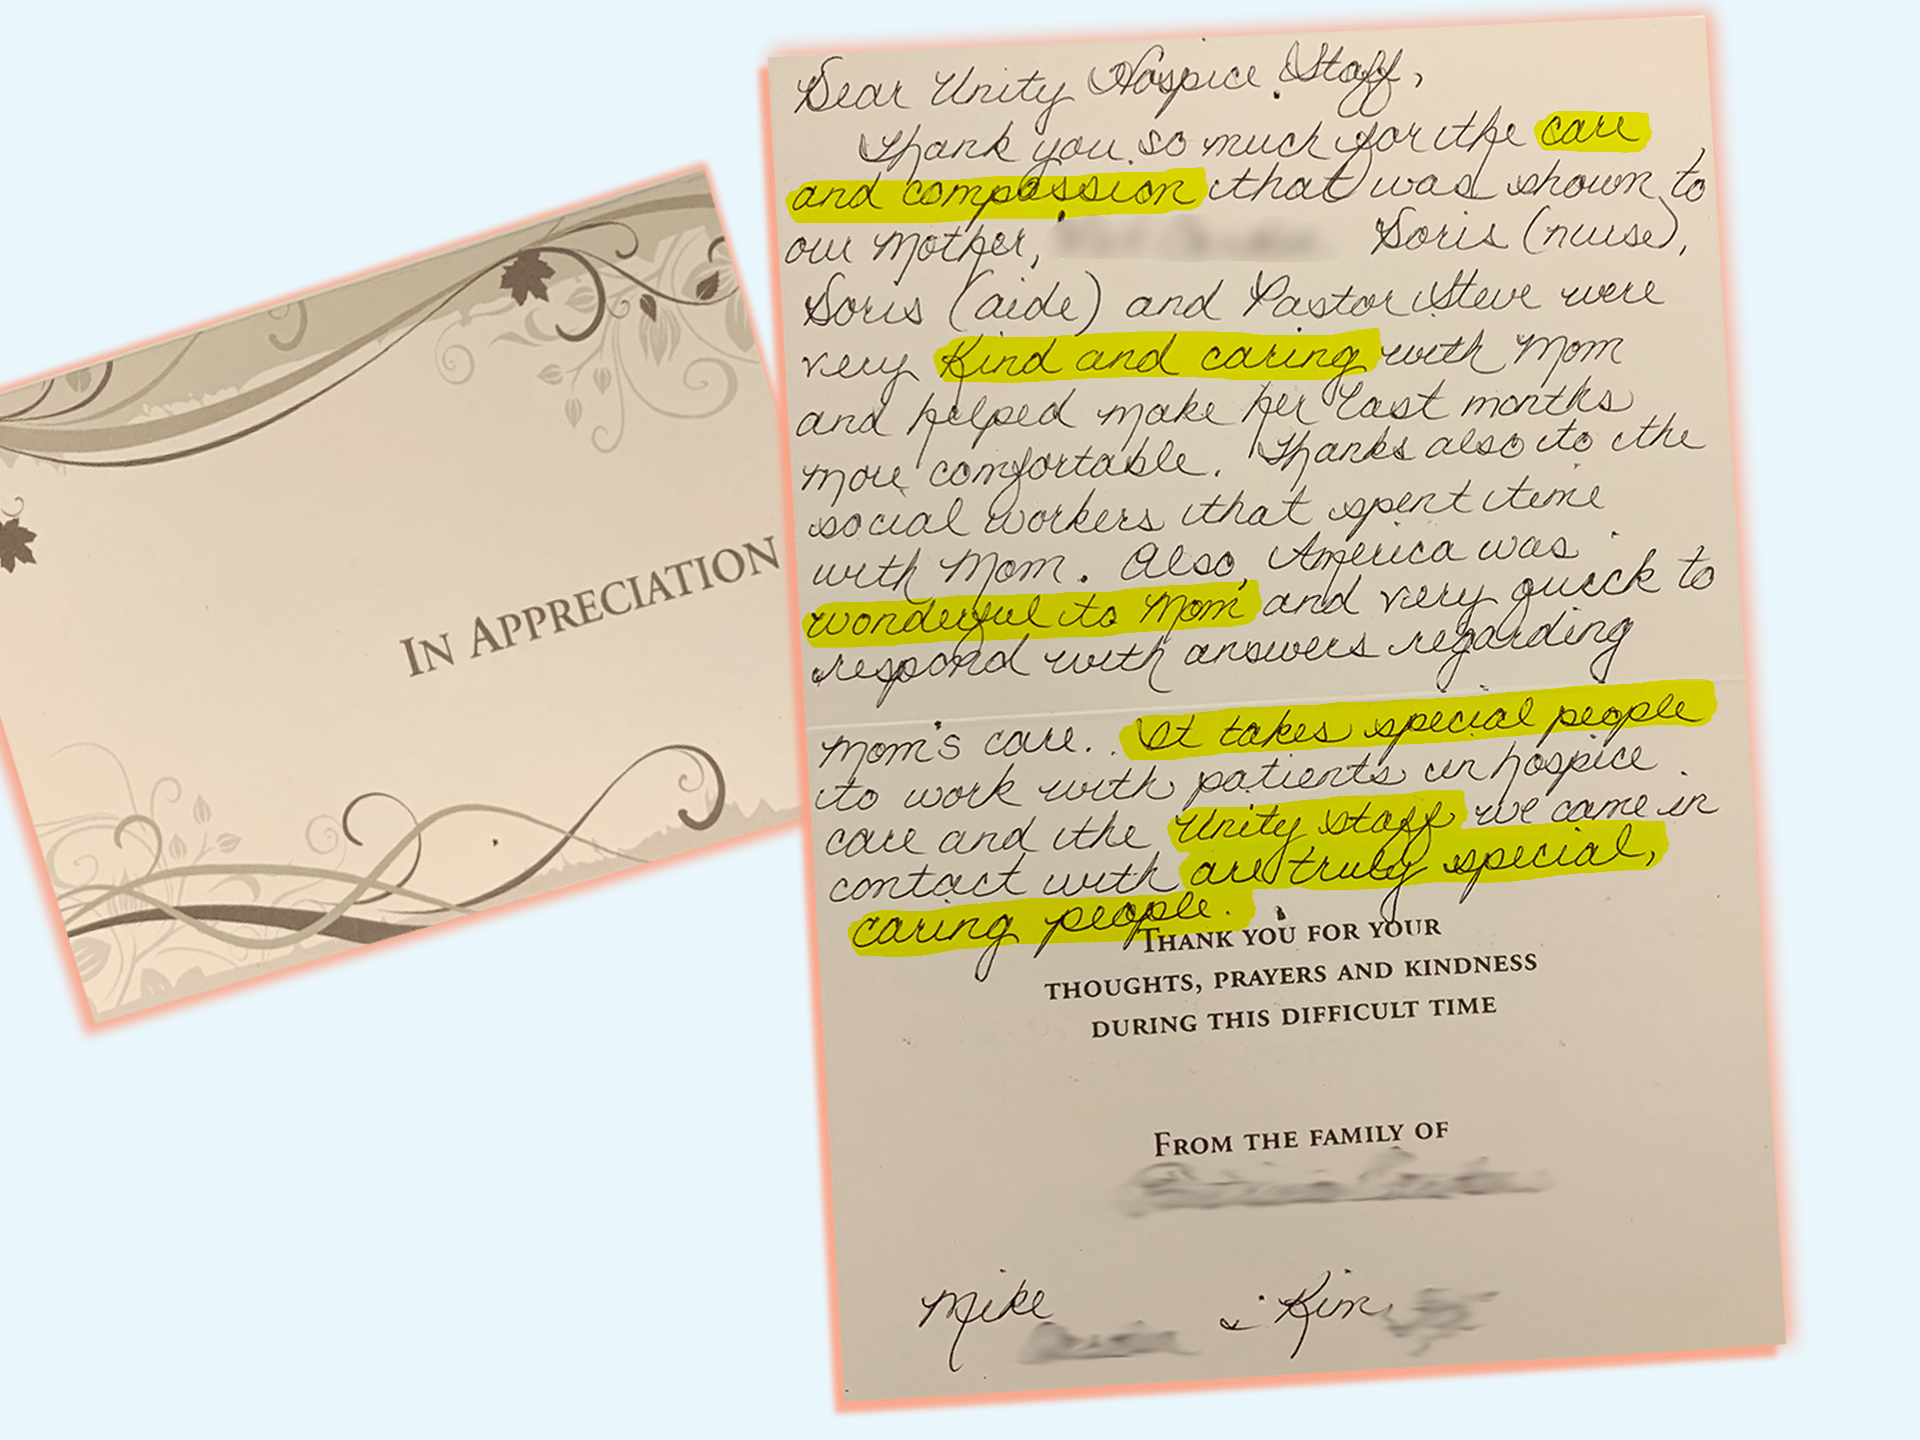 IN APPRECIATION
Dear Unity Hospice Staff,
Thank you so much for the care
and compassion that was shown to
our Mother, Doris (nurse),
Doris (aide) and Pastor Steve were
very kind and caring with Mom
and helped make her last months
more comfortable. Thanks also to the
social workers that spent time
with Mom. Also, America was
wonderful to Mom and very quick to
respond with answers regarding
Mom's care. It takes special people
to work with patients in hospice
care and the Unity staff we came in
contact with are truly special,
caring people.
THANK YOU FOR YOUR
THOUGHTS, PRAYERS AND KINDNESS
DURING THIS DIFFICULT TIME
FROM THE FAMILY OF
Mike & Kim